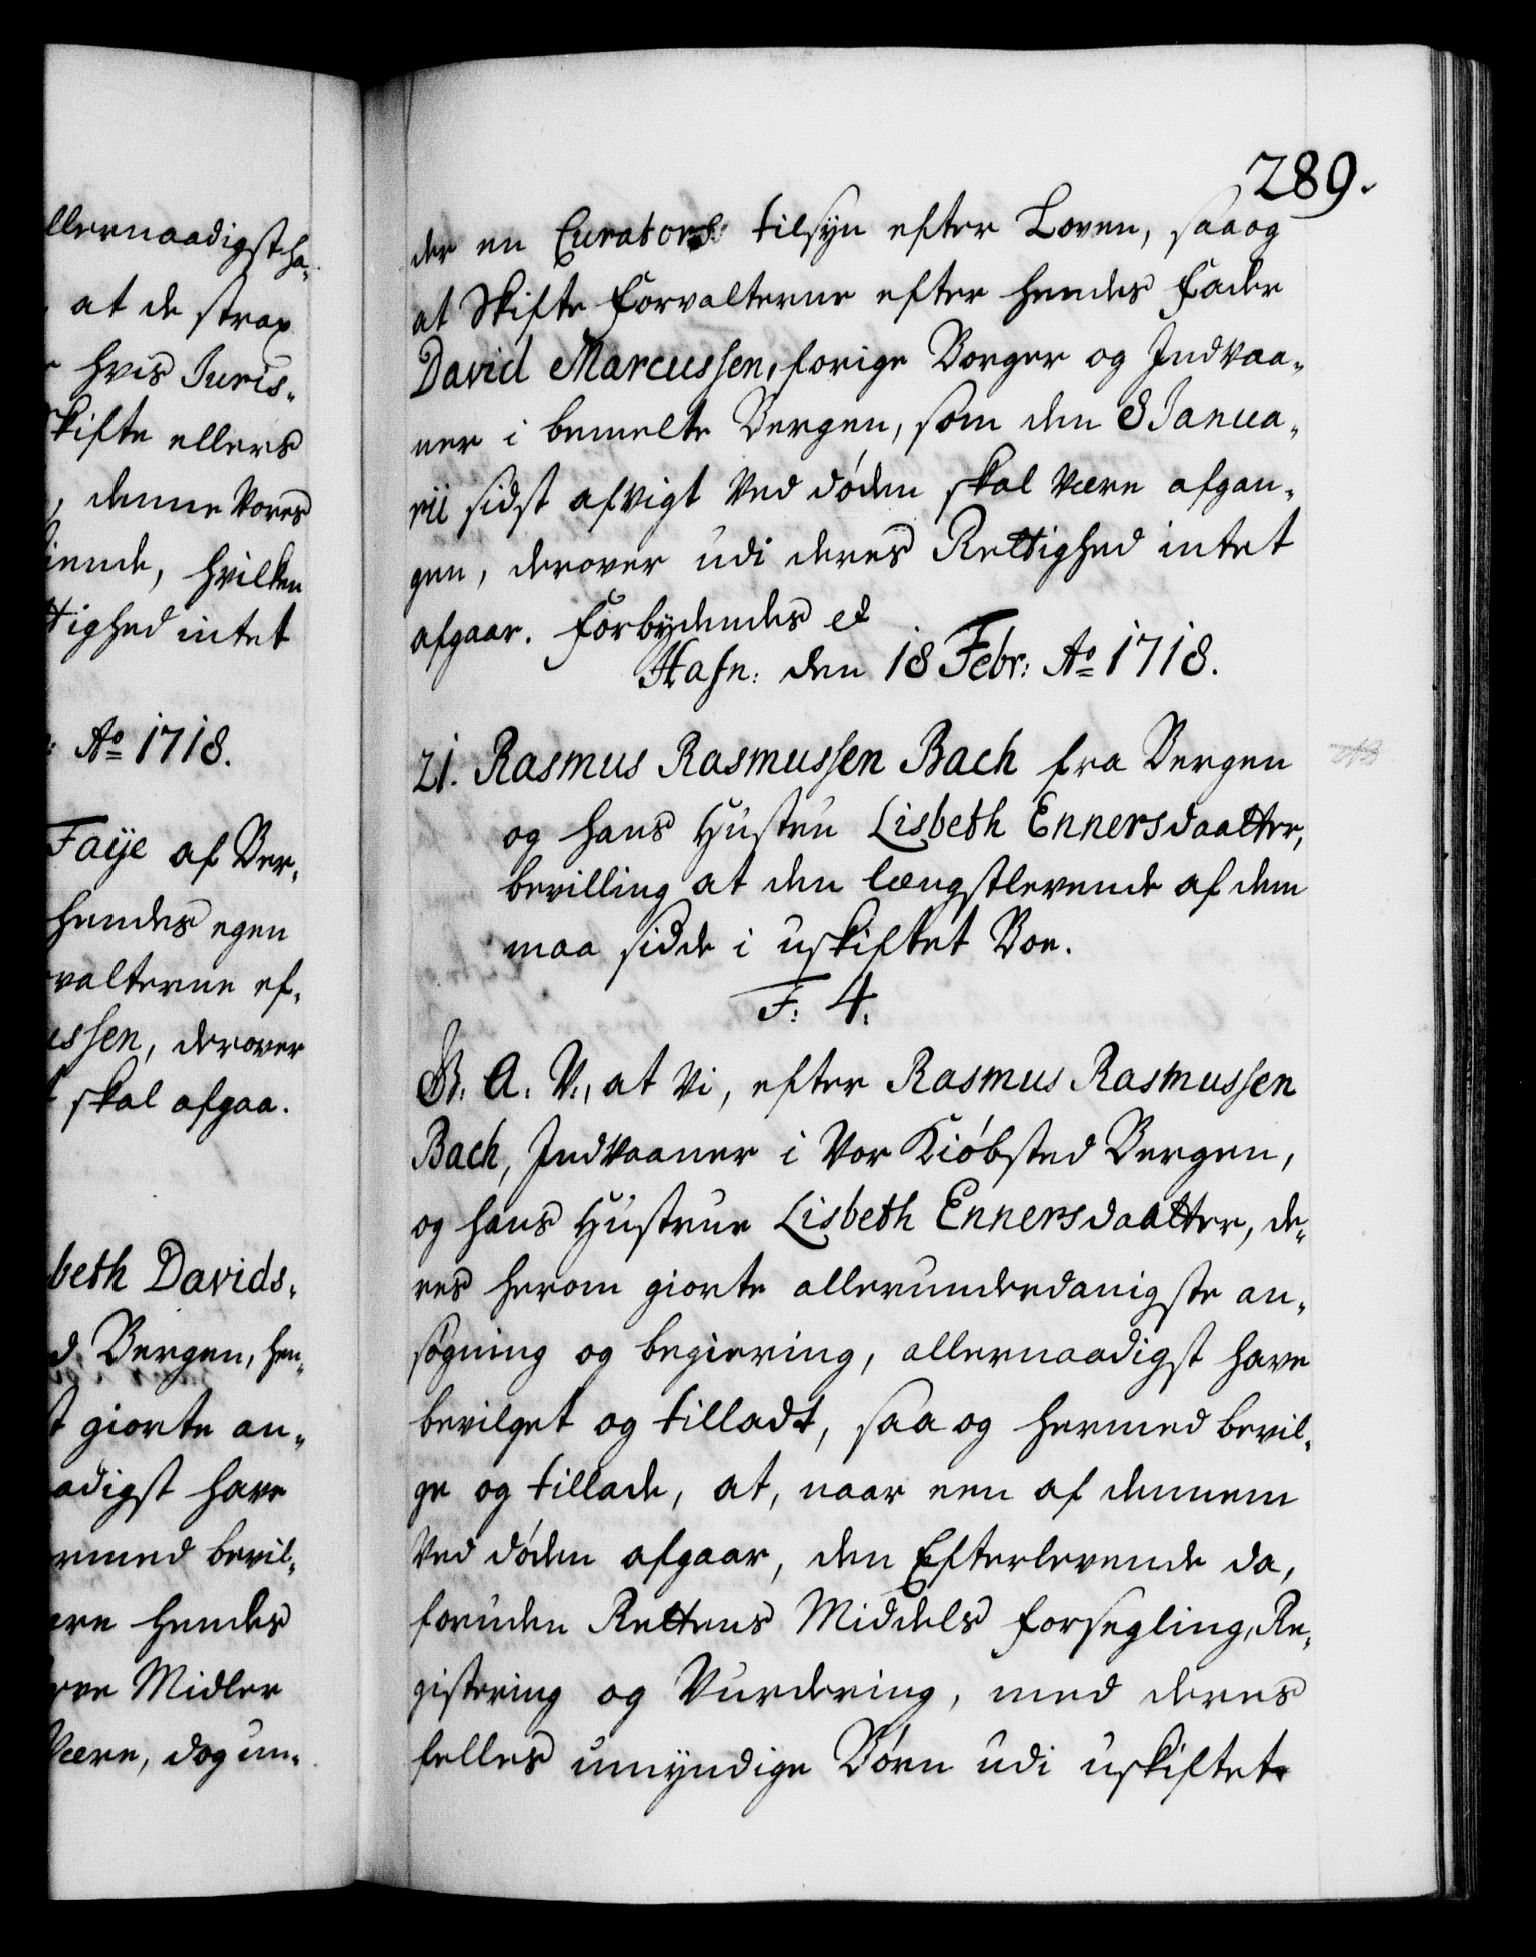 llernaadigst ha-
at de strax
hvis Juris-
Skifte ellers
, denne Vores
iende, hvilken
tighed intet
: Ao 1718.
Faÿe af Ber-
hendes egen
valterne ef-
ussen, derover
t skal afgaa.
beth Davids-
d Bergen, hen-
t giorte an-
adigst have
ermed bevil-
ære hendes
rve Midler
være, dog un-
289.
der en Curators tilsyn efter Loven, saa og
at Skifte Forvalterne efter hendes Fader
David Marcussen, forige Borger og Indvaa-
ner i bemelte Bergen, som den 8 Janua-
rii sidst afvigt ved døden skal være afgan-
gen, derover udi deres Rettighed intet
afgaar. Forbydendes et
Hafn: den 18 Febr: Ao 1718.
21. Rasmus Rasmussen Bach fra Bergen
og hans Hustru Lisbeth Ennersdaatter,
bevilling at den længstlevende af dem
maa sidde i uskiftet Boe.
F: 4.
G. A. V., at Vi, efter Rasmus Rasmussen
Bach, Indvaaner i Vor Kiøbsted Bergen,
og hans Hustrue Lisbeth Ennersdaatter, de-
res herom giorte allerunderdanigste an-
søgning og begiering, allernaadigst have
bevilget og tilladt, saa og hermed bevil-
ge og tillade, at, naar een af dennem
ved døden afgaar, den Efterlevende da,
foruden Rettens Middels forsegling, Re-
gistering og Vurdering, med deres
felles umyndige Børn udi uskiftet